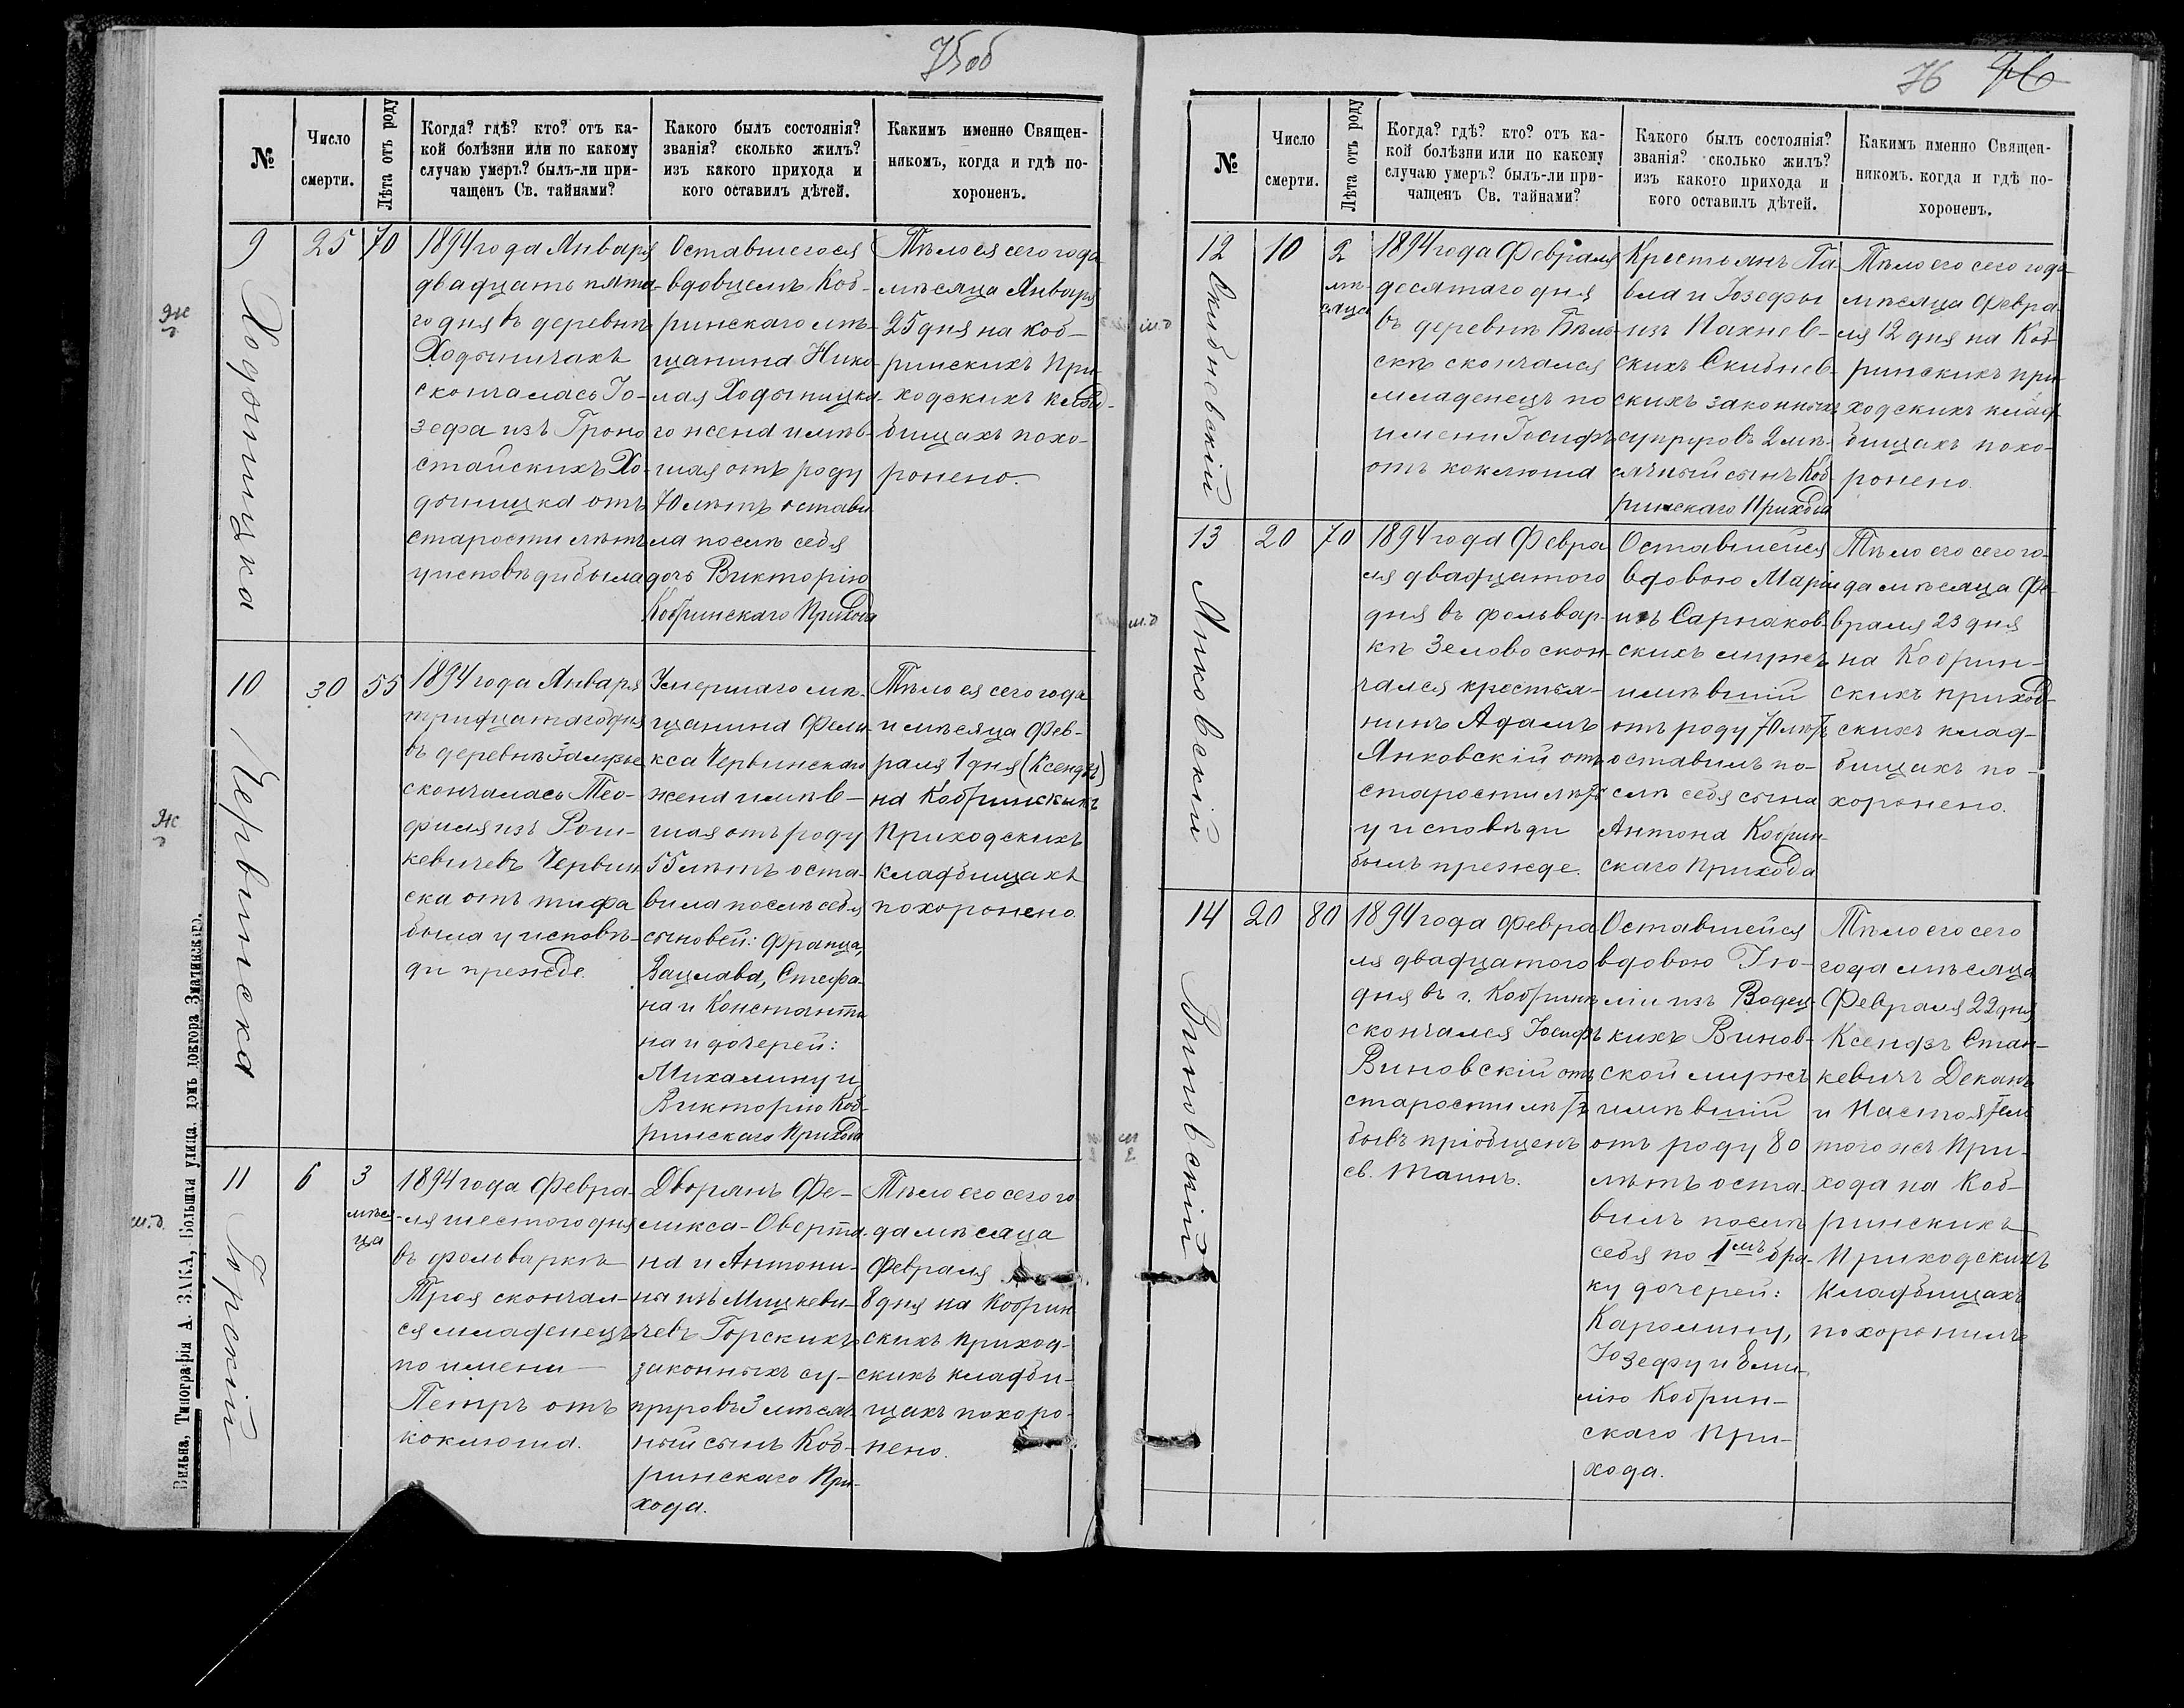 75об
№
Число
смерти.
Лѣта отъ роду
Когда? гдѣ? кто? отъ ка-
кой болѣзни или по какому
случаю умеръ? былъ-ли при-
чащенъ Св. тайнами?
Какого былъ состоянія?
званія? сколько жилъ?
изъ какого прихода и
кого оставилъ дѣтей.
Какимъ именно Священ-
никомъ, когда и гдѣ по-
хороненъ.
9
Ходыницка
25
70
1894 года Января
двадцать пята-
го дня въ деревнѣ
Ходыничахъ
скончалась Іо-
зефа изъ Гроно
стайскихъ Хо-
дыницка отъ
старости лѣтъ
у исповѣди была
Оставшегося
вдовцемъ Коб-
ринскаго мѣ-
щанина Нико-
лая Ходыницка-
го жена имѣв-
шая отъ роду
70 лѣтъ остави
ла послѣ себя
дочь Викторію
Кобринскаго Прихода
Тѣло ея сего года
мѣсяца Января
25 дня на Коб-
ринскихъ При-
ходскихъ клад-
бищахъ похо-
ронено.
10
Червинска
30
55
1894 года Января
тридцатаго дня
въ деревнѣ Залѣсье
скончалась Тео-
филя изъ
кевичевъ Червин
ска отъ тифа
была у исповѣ-
ди прежде.
Умершаго мѣ-
щанина Фели
кса Червинскаго
жена имѣв-
шая отъ роду
55 лѣтъ оста-
вила послѣ себя
сыновей: Франца,
Вацлава, Стефа-
на и Константи
на и дочерей:
Михалину и
Викторію Коб-
ринскаго Прихода
Тѣло ея сего года
и мѣсяца Фев-
раля 1 дня (Ксендзъ)
на Кобринскихъ
Приходскихъ
кладбищахъ
похоронено.
11
Горскій
6
3
мѣся
ца
1894 года Февра
ля шестого дня
въ фольваркѣ
скончал-
ся младенецъ
по имени
Петръ отъ
коклюша.
Дворянъ Фе-
ликса-
на и Антони-
ны изъ Мицкеви-
чевъ Горскихъ
законныхъ су-
пруговъ 3 мѣсяч
ный сынъ Коб-
ринскаго При-
хода.
Тѣло его сего го
да мѣсяца
Февраля
8 дня на Кобрин
скихъ Приход-
скихъ кладби-
щахъ похоро-
нено.
Вильна, Типографія А. ЗАКА, Большая улица, домъ доктора
76
№
Число
смерти.
Лѣта отъ роду
Когда? гдѣ? кто? отъ ка-
кой болѣзни или по какому
случаю умеръ? былъ-ли при-
чащенъ Св. тайнами?
Какого былъ состоянія?
званія? сколько жилъ?
изъ какого прихода и
кого оставилъ дѣтей.
Какимъ именно Священ-
никомъ. когда и гдѣ по-
хороненъ.
12
Скибневскій
10
2
мѣ-
сяца
1894 года Февраля
десятаго дня
въ деревнѣ
скончался
младенецъ по
имени Іосифъ
отъ коклюша
Крестьянъ Па-
вла и Іозефы
изъ Пахнев-
скихъ Скибнев-
скихъ законныхъ
супруговъ 2 мѣ-
сячный сынъ Коб-
ринскаго Прихода
Тѣло его сего года
мѣсяца Февра-
ля 12 дня на Коб-
ринскихъ при-
ходскихъ клад-
бищахъ похо-
ронено.
13
Янковскій
20
70
1894 года Февра
ля двадцатого
дня въ фольвар-
кѣ Зелово скон-
чался крестья-
нинъ Адамъ
Янковскій отъ
старости лѣтъ
у исповѣди
былъ прежде.
Оставшейся
вдовою Маріи
изъ Сарнаков-
скихъ мужъ
имѣвшій
отъ роду 70 лѣтъ
оставилъ по-
слѣ себя сына
Антона Кобрин-
скаго Прихода
Тѣло его сего го-
да мѣсяца Фе-
враля 23 дня
на Кобрин-
скихъ приход-
скихъ клад-
бищахъ по-
хоронено.
14
Виновскій
20
80
1894 года Февра
ля двадцатого
дня въ г. Кобринѣ
скончался Іосифъ
Виновскій отъ
старости лѣтъ
бывъ пріобщенъ
св. Таинъ.
Оставшейся
вдовою Ію-
ліи изъ
Винов-
ской мужъ
имѣвшій
отъ роду 80
лѣтъ оста-
вилъ послѣ
себя по 1мъ бра-
ку дочерей:
Каролину,
Іозефу и Эми
лію Кобрин-
скаго При-
хода.
Тѣло его сего
года мѣсяца
Февраля 22 дня
Ксендзъ Стан-
кевичъ Деканъ
и Настоятель
того же При-
хода на Коб-
ринскихъ
Приходскихъ
Кладбищахъ
похоронилъ